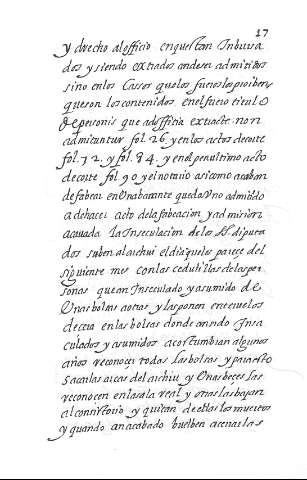 17
y drecho al officio en questan Inbursa
dos y siendo extrados an de ser admitidos
sino en los Cassos que los fueros lo prohiben
que son los contenidos en el fuero titulo
De personis que ad officia extracte non
admitantur fol. 26. y en los actos de corte
fol. 72. y fol. 84. y en el penultimo acto
de corte fol. 90 y el notario asi como acaban
de fabear en Una bacante queda Uno admitido
a de hacer acto de la fabeacion y admision
acauada La Insecculacion de los Ss. diputa
dos suben al archiu el dia que les parece del
siguiente mes con las cedulillas de las per
sonas que an Inseculado y asumido de
Unas bolsas a otras y las ponen en teruelos
de cera en las bolsas donde an sido Inse
culados y asumidos acostumbran algunos
años reconocer todas las bolsas y para esto
sacan las arcas del archiu y Unas beçes las
reconocen en la sala real y otras las bajan
al consistorio y quitan de ellas los muertos
y quando an acabado buelben a cerrar las